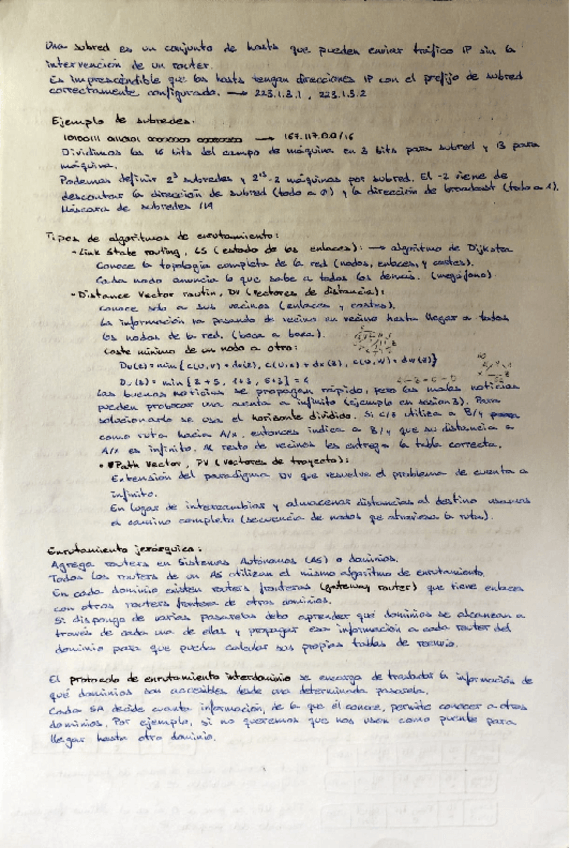 Una subred es un conjunto de hosts que pueden enviar tráfico IP sin la
intervención de un router.
Es imprescindible que los hosts tengan direcciones IP con el prefijo de subred
correctamente configurado. → 223.1.3.1, 223.1.3.2
Ejemplo de subredes:
→ 167.117.0.0/16
Dividimos los 16 bits del campo de máquina en 3 bits para subred y 13 para
máquina.
Podemos definir 2³ subredes y 2¹³-2 máquinas por subred. El -2 viene de
descontar la dirección de subred (todo a 0) y la dirección de broadcast (todo a 1).
Máscara de subredes /19
Tipos de algoritmos de enrutamiento:
• Link State routing, LS (estado de los enlaces): → algoritmo de Dijkstra
Conoce la topología completa de la red (nodos, enlaces y costes).
Cada nodo anuncia lo que sabe a todos los demás. (megáfono).
• Distance Vector routin, DV (vectores de distancia):
Conoce sólo a sus vecinos (enlaces y costes).
La información va pasando de vecino en vecino hasta llegar a todos
los nodos de la red. (boca a boca).
Coste mínimo de un nodo a otro:
Du(z) = min { c(u,v) + dv(z), c(u,x) + dx(z), c(u,w) + dw(z)}
Du(z) = min { 2+5, 1+3, 5+3} = 4
Las buenas noticias se propagan rápido, pero las malas noticias
pueden provocar una cuenta a infinito (ejemplo en sesion 3). Para
solucionarlo se usa el horizonte dividido. Si C/z utiliza a B/y
como ruta hacia A/x, entonces indica a B/y que su distancia a
A/x es infinito. Al resto de vecinos les entrega la tabla correcta.
• Path Vector, PV (vectores de trayecto):
Extensión del paradigma DV que resuelve el problema de cuenta a
infinito.
En lugar de intercambiar y almacenar distancias al destino usamos
el camino completo (secuencia de nodos que atraviesa la ruta).
Enrutamiento jerárquico:
Agrega routers en Sistemas Autónomos (AS) o dominios.
Todos los routers de un AS utilizan el mismo algoritmo de enrutamiento.
En cada dominio existen routers fronteras (gateway router) que tiene enlaces
con otros routers frontera de otros dominios.
Si dispongo de varias pasarelas debo aprender qué dominios se alcanzan a
través de cada una de ellas y propagar esa información a cada router del
dominio para que pueda calcular sus propias tablas de reenvío.
El protocolo de enrutamiento interdominio se encarga de trasladar la información de
qué dominios son accesibles desde una determinada pasarela.
Cada SA decide cuanta información, de la que él conoce, permite conocer a otros
dominios. Por ejemplo, si no queremos que nos usen como puente para
llegar hasta otro dominio.